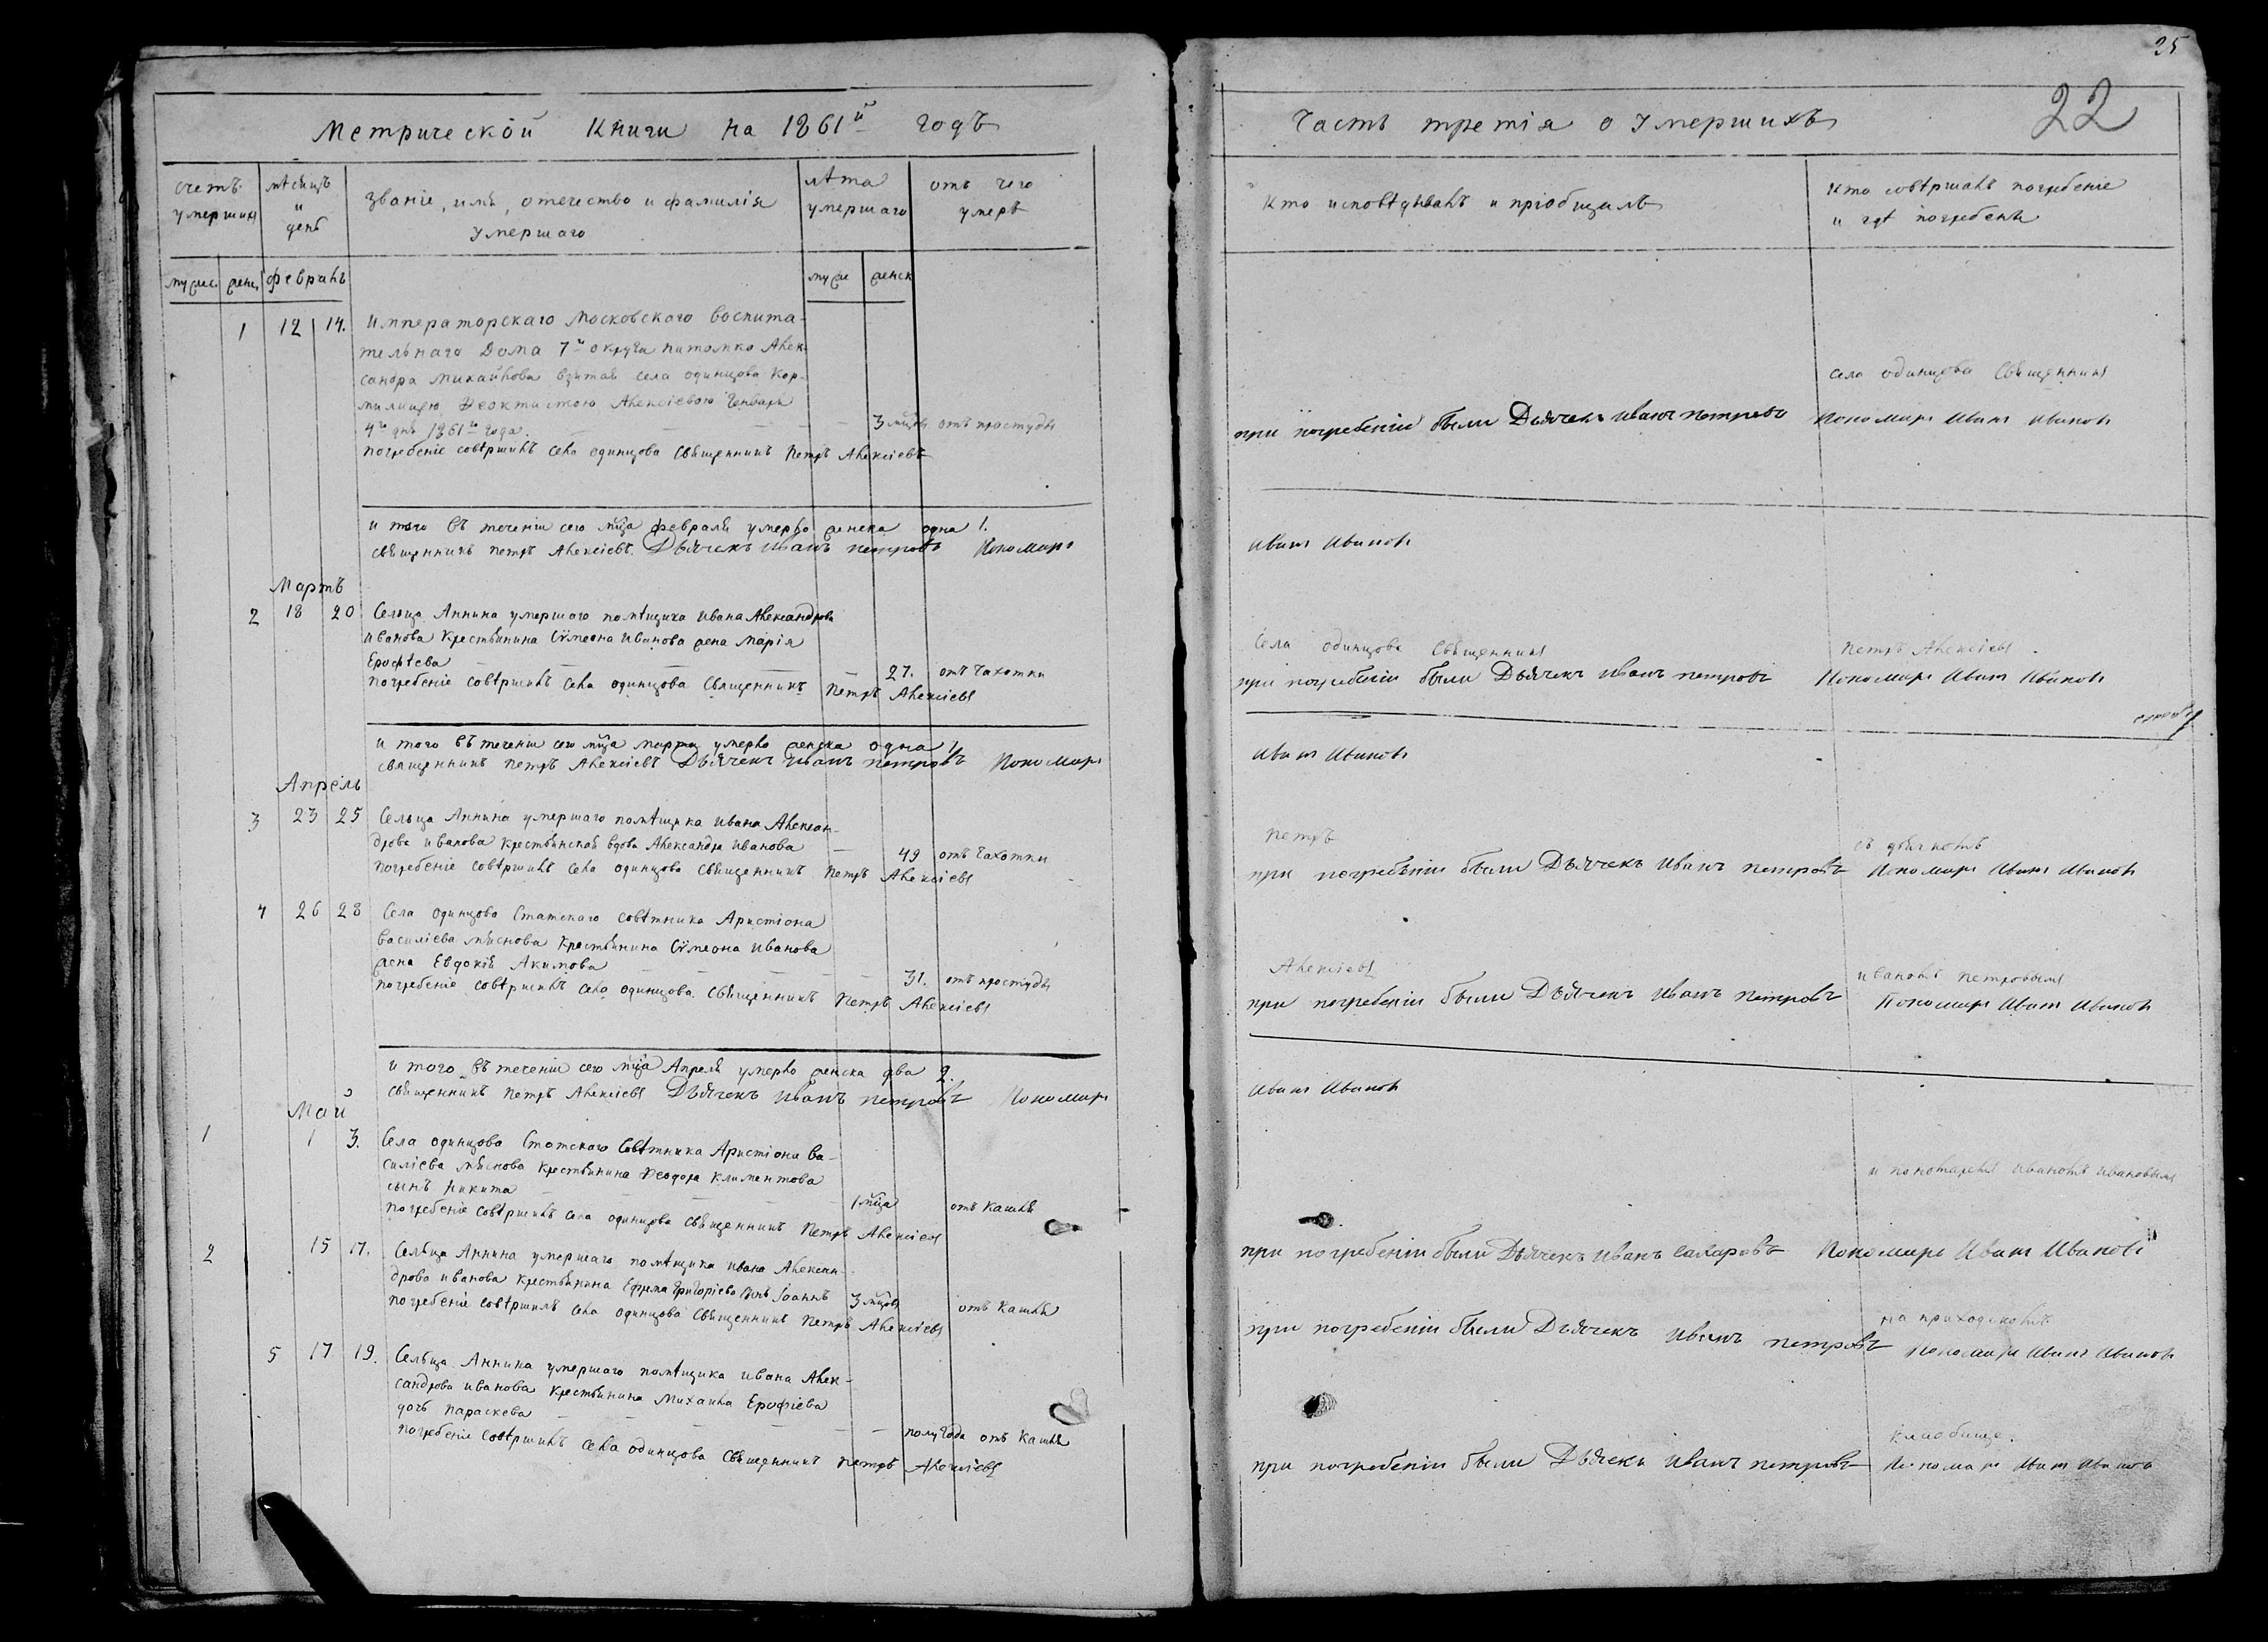 Метрической Книги на 1861й годъ
счетъ умершихъ
мѣсяцъ и день
званіе, имя, отечество и фамилія умершаго
лѣта умершаго
отъ чего умеръ
муже. женс. февраль
муже женск
1 12 14. Императорскаго Московскаго воспита-
тельнаго Дома 7й округи питомка Алек-
сандра Михайлова взятая села одинцова Кор-
милицею Феоктистою Алексіевою Генваря
4го дня 1861го года. 3 мцы отъ простуды
погребеніе совѣршилъ села одинцова священникъ Петръ Алексіевъ
и того въ теченіи сего мца февраля умерло женска одна 1.
священникъ Петръ Алексіевъ. Дьячекъ Иванъ Петровъ Пономарь
Мартъ
2 18 20 Сельца Аннина умершаго помѣщика Ивана Александрова
Иванова Крестьянина Сѵмеона Иванова жена Марія
Ерофѣева 27. отъ чахотки
погребеніе совѣршилъ села одинцова Священникъ Петръ Алексіевъ
и того въ теченіи сего мца марта умерло женска одна 1.
священникъ Петръ Алексіевъ Дьячекъ Иванъ Петровъ Пономарь
Апрель
3 23 25 Сельца Аннина умершаго помѣщика Ивана Алексан-
дрова Иванова Крестьянская вдова Александра Иванова 49 отъ чахотки
погребеніе совѣршилъ села одинцова священникъ Петръ Алексіевъ
4 26 28 Села одинцова Статскаго совѣтника Аристіона
Василіева Мяснова Крестьянина Сѵмеона Иванова
жена Евдокія Акимова 31. отъ простуды
погребеніе совѣршилъ села одинцова священникъ Петръ Алексіевъ
и того въ теченіи сего мца Апреля умерло женска два 2.
священникъ Петръ Алексіевъ Дьячекъ Иванъ Петровъ Пономарь
Май
1 1 3. Села одинцова Статскаго Совѣтника Аристіона Ва-
силіева Мяснова Крестьянина Феодора Климентова
сынъ Никита 1 мца отъ Кашля
погребеніе совѣршилъ села одинцова священникъ Петръ Алексіевъ
2 15 17. Сельца Аннина умершаго помѣщика Ивана Алексан-
дрова Иванова Крестьянина Ефрема Григоріева сынъ Іоаннъ 3 мцовъ отъ Кашля
погребеніе совѣршилъ села одинцова священникъ Петръ Алексіевъ
5 17 19. Сельца Аннина умершаго помѣщика Ивана Алек-
сандрова Иванова Крестьянина Михаила Ерофіева
дочь Параскева полугода отъ Кашля
погребеніе совѣршилъ села одинцова священникъ Петръ Алексіевъ
25
22
Часть третія о умершихъ
Кто исповѣдывалъ и пріобщалъ
Кто совѣршалъ погребеніе
и гдѣ погребены
села одинцова священникъ
при погребеніи были Дьячекъ Иванъ Петровъ Пономарь Иванъ Ивановъ
Иванъ Ивановъ
Села одинцова священникъ Петръ Алексіевъ
при погребеніи были Дьячекъ Иванъ Петровъ Пономарь Иванъ Ивановъ
Иванъ Ивановъ
Петръ съ дьячкомъ
при погребѣніи были Дьячекъ Иванъ Петровъ Пономарь Иванъ Ивановъ
Алексіевъ Иваномъ Петровымъ
при погребеніи были Дьячекъ Иванъ Петровъ Пономарь Иванъ Ивановъ
Иванъ Ивановъ
и пономаремъ Иваномъ Ивановымъ
при погребеніи были Дьячекъ Иванъ Сахаровъ Пономарь Иванъ Ивановъ
на приходскомъ
при погребеніи были Дьячекъ Иванъ Петровъ Пономарь Иванъ Ивановъ
Кладбище.
при погребеніи были Дьячекъ Иванъ Петровъ Пономарь Иванъ Ивановъ